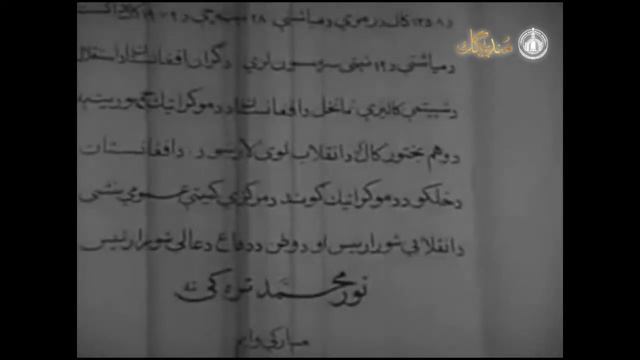 د ۱۳۵۸ کال د زمري د میاشتي ۲۸ نیټه چي د ۱۹۷۹ کال د اګست
د میاشتي د ۱۹ نیټې سره سمون لري د ګران افغانستان د استقلال
د شپیتمي کالیزي نمانځل د افغانستان د دموکراتیک جمهوریت په
دوهم بختور کال د انقلاب لوی لارښود ، د افغانستان
د خلکو د دموکراتیک ګوند د مرکزي کمیټې عمومي منشي
د انقلابي شورا رییس او د وطن د دفاع د عالي شورا رئیس
نور محمد تره کي ته
مبارکي وایم